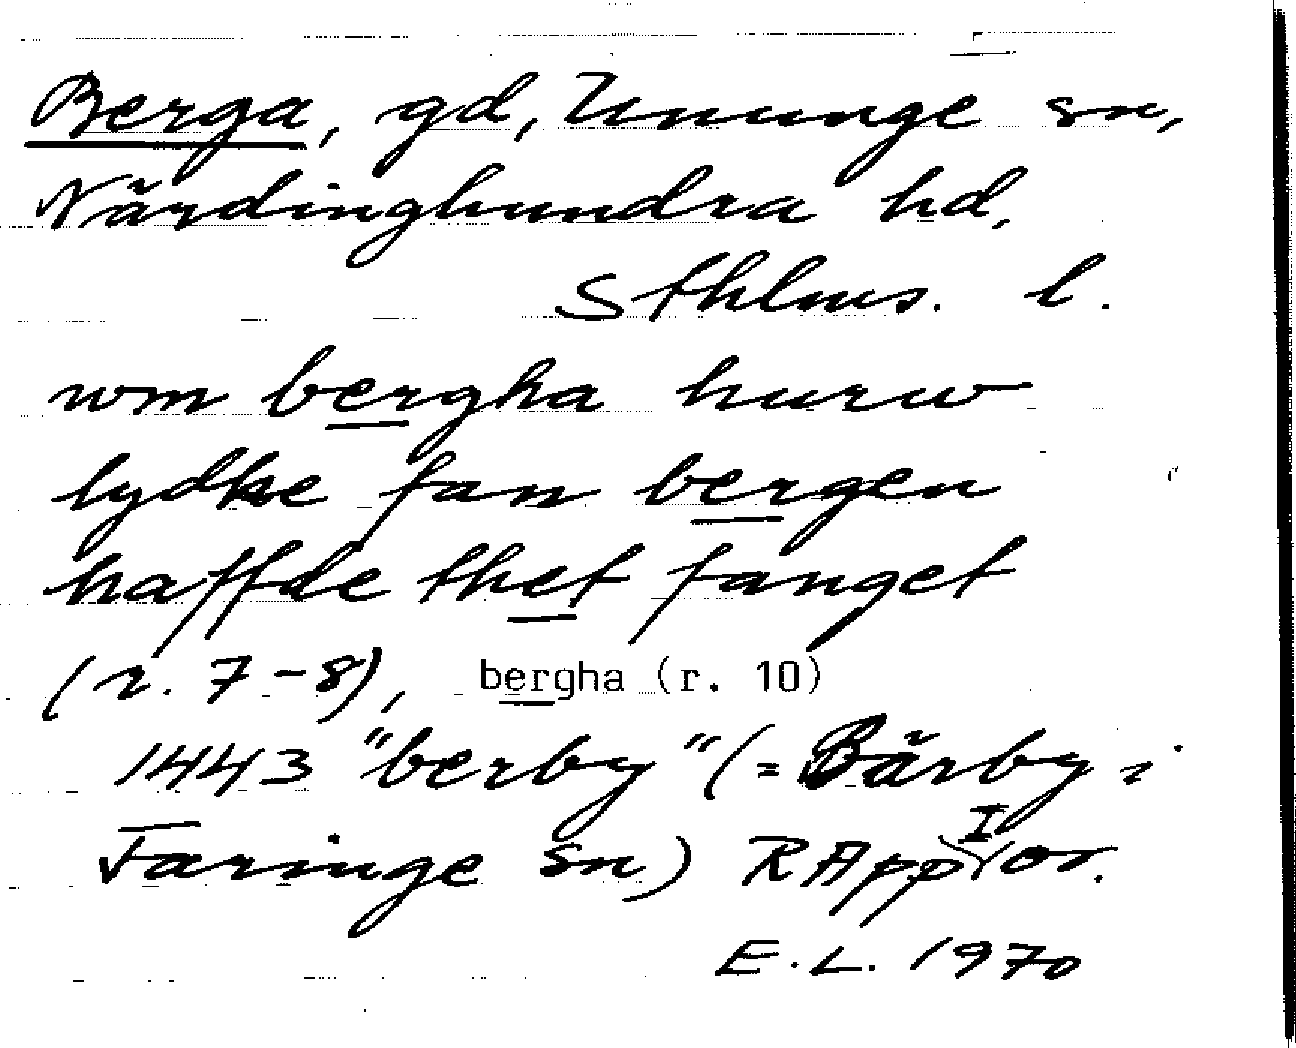 Berga, gd, Ununge sn,
Närdinghundra hd,
Sthlms. l.
wm bergha hurw
lydke fan bergen
haffde thet fanget
(r. 7-8), bergha (r. 10)
1443 "berby" (= Bärby i
Faringe sn) RApp I or.
E.L. 1970